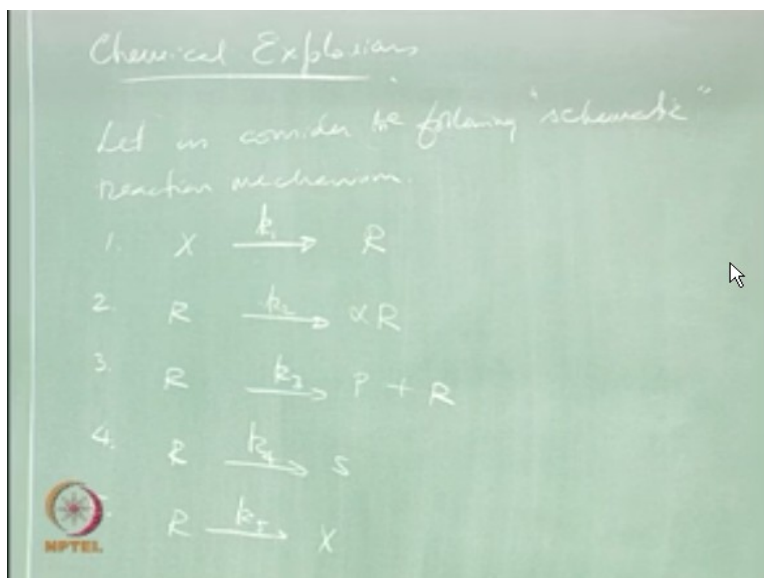 Chemical Explosions
Let us consider the following "schematic"
reaction mechanism.
1. X k₁ → R
2. R k₂ → αR
3. R k₃ → P + R
4. R k₄ → S
R k₅ → X
NPTEL